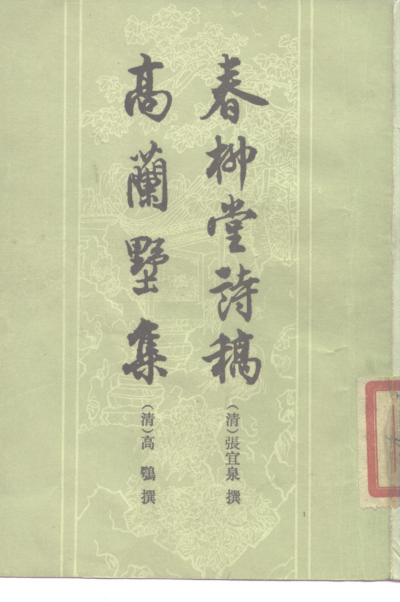 春柳堂詩稿
(清)張宜泉 撰
高蘭墅集
(清)高鶚 撰